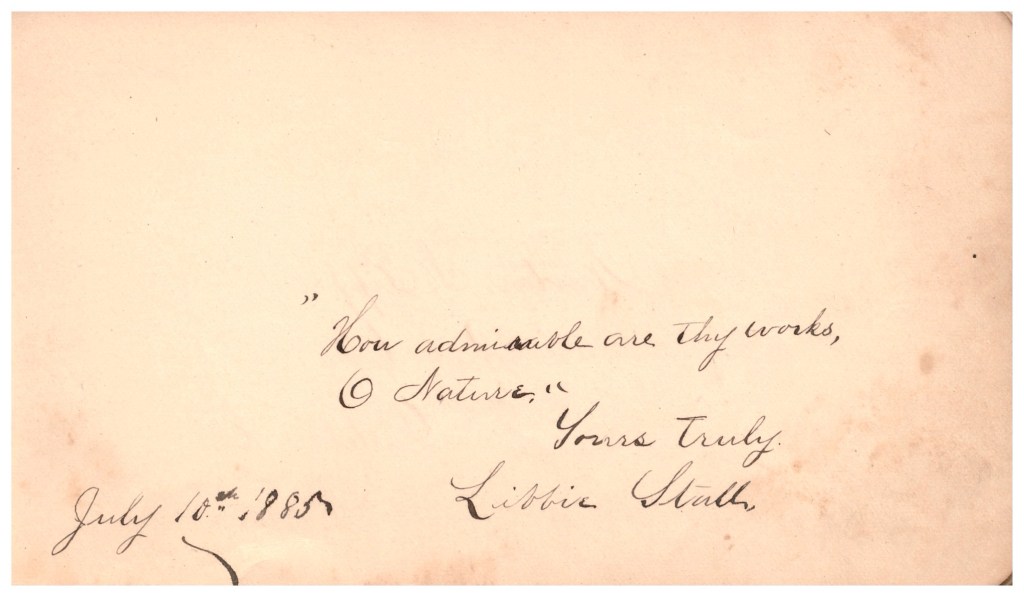 "How admirable are thy works,
O Nature."
Yours Truly.
Libbie Stall.
July 10th 1885